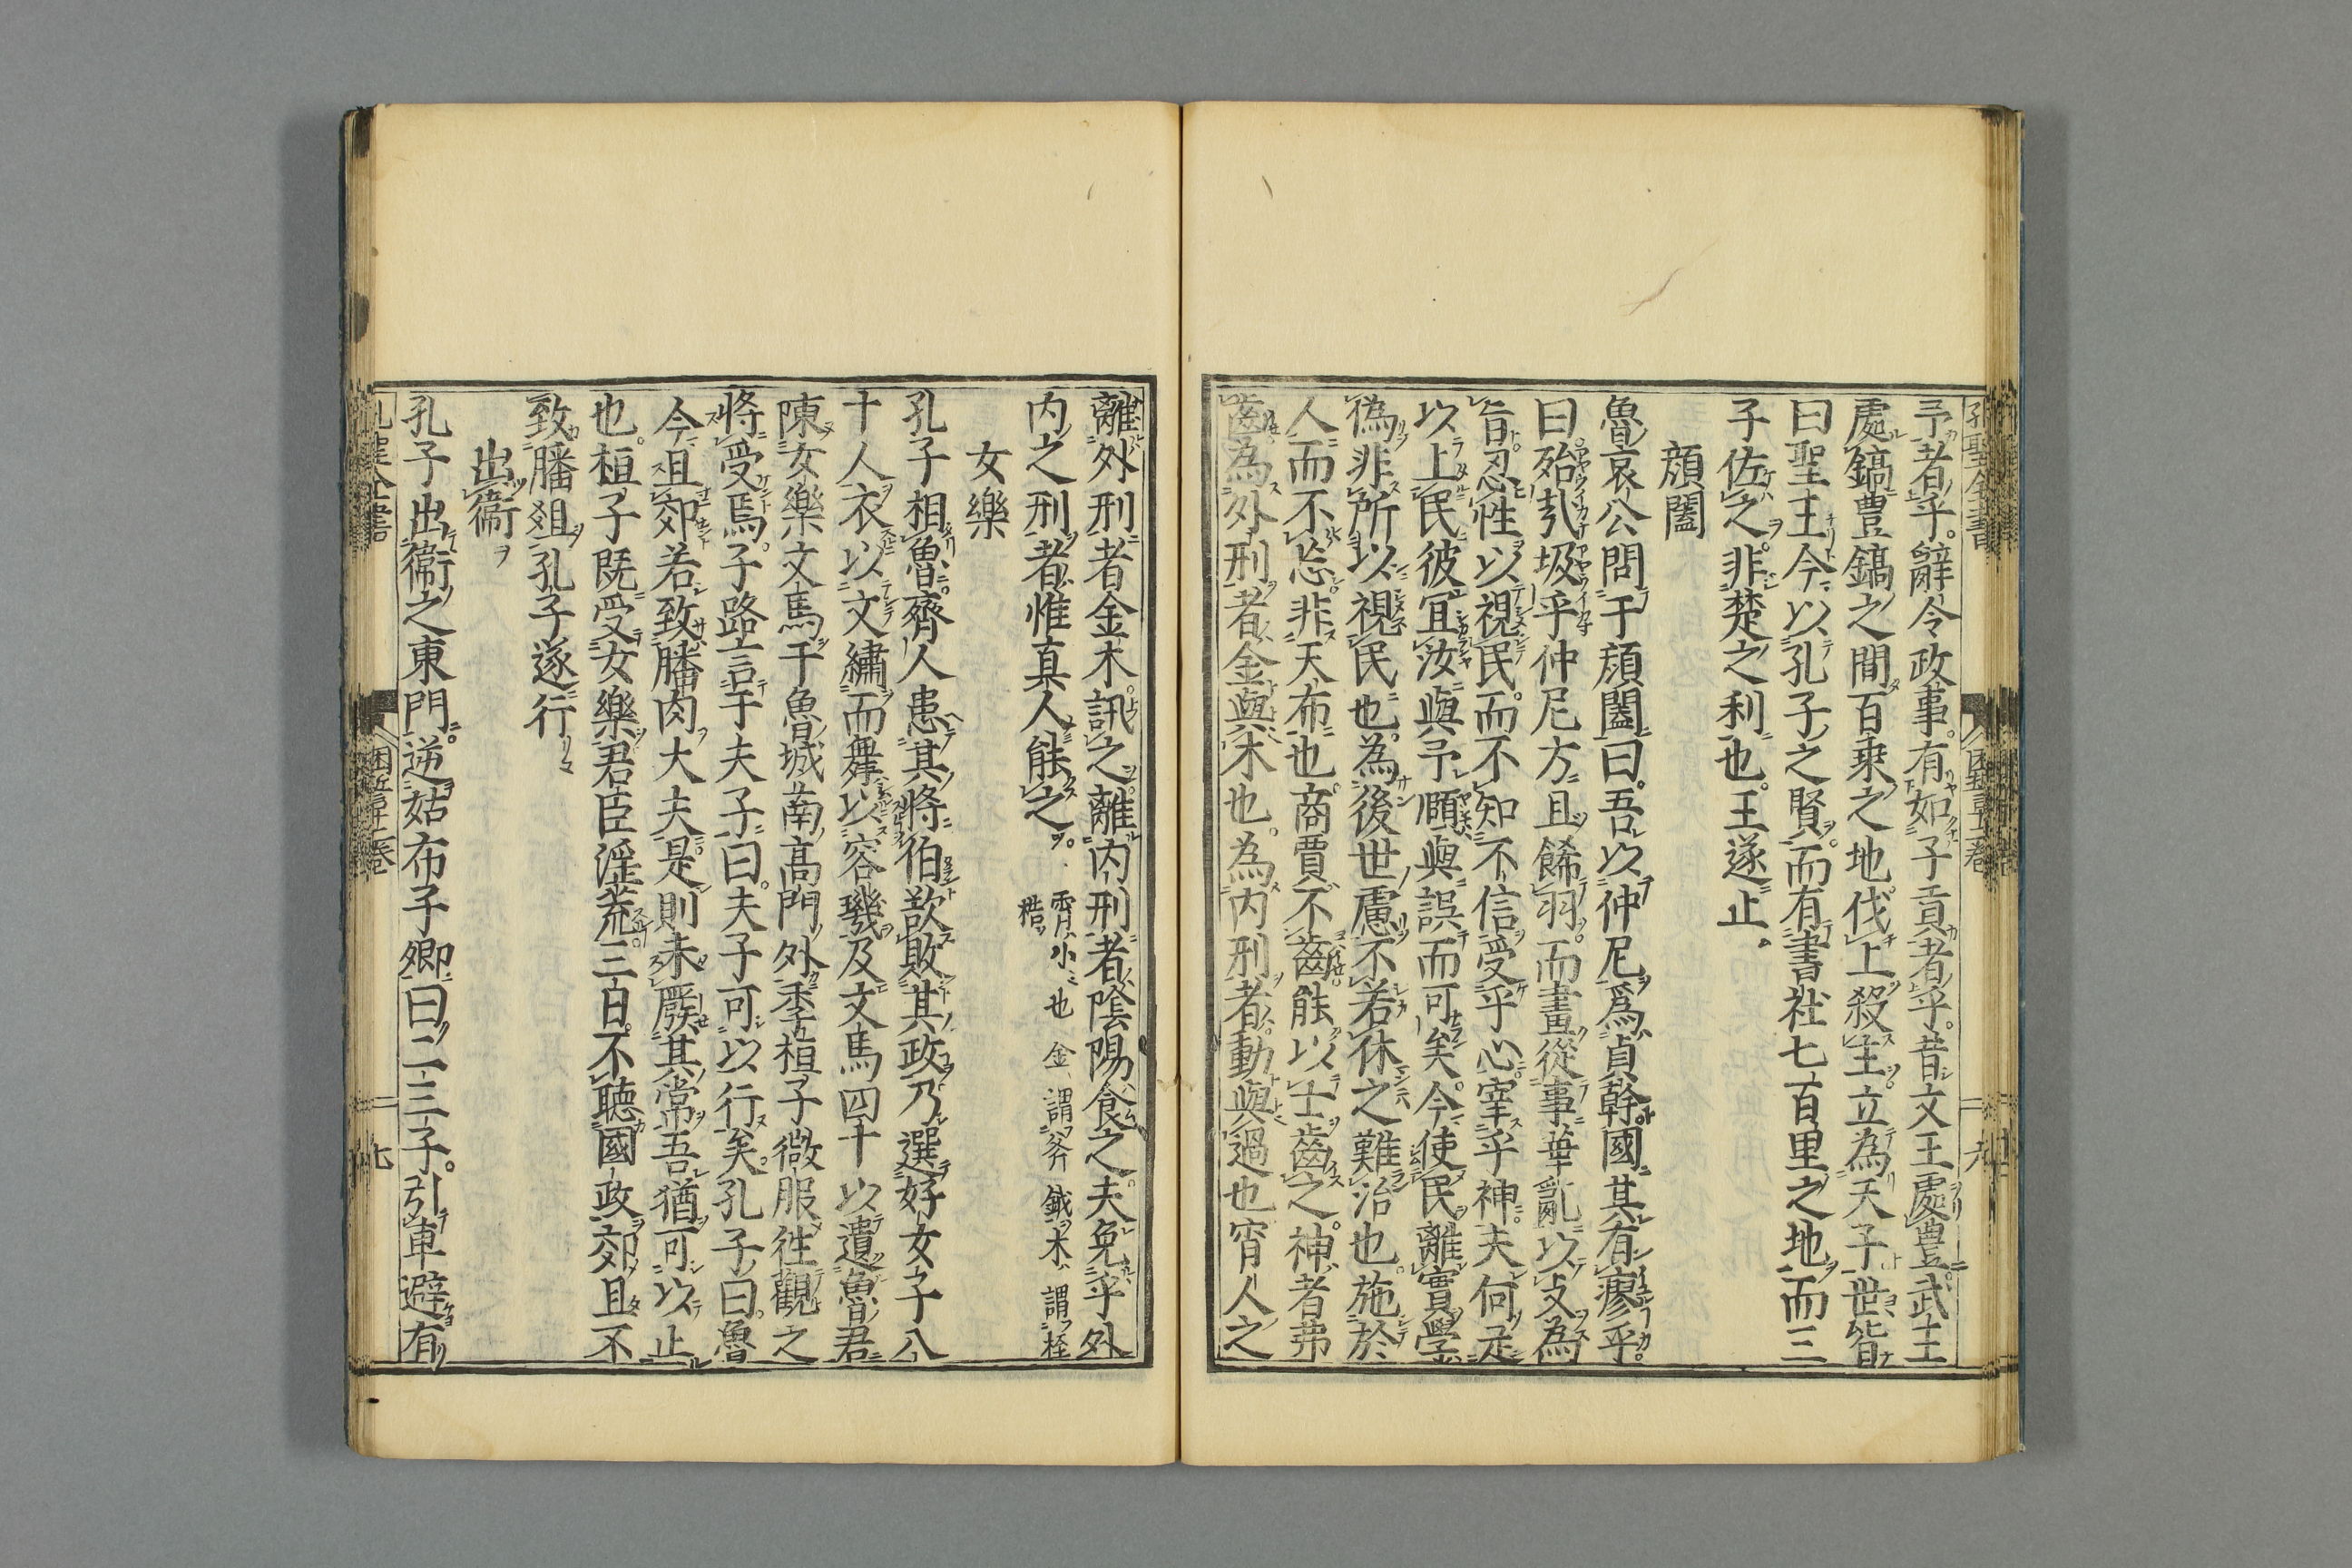 予者乎。辭令政事。有如子貢者乎。昔文王處豊武王
處鎬豊鎬之間百乗之地。伐上殺主。立為天子世皆
曰聖王今以孔子之賢。而有書社七百里之地而三
子佐之。非楚之利也。王遂止。
顔闔
魯哀公問于顔闔曰。吾以仲尼爲貞幹國其有瘳乎。
曰。殆㢤圾乎仲尼方且餙羽。而畫從事華亂以支為
旨。忍性以視民。而不知不信受乎心宰乎神。夫何足
以上民彼宜汝與予頤與誤而可矣。今使民離實學
偽非所以視民也。為後世慮不若休之難治也。施於
人而不忘。非天布也。商賈不齒。能以士齒之。神者弗
齒為外刑者金與木也。為内刑者。動與過也宵人之
離外刑者金木。訊之。離内刑者陰陽食之。夫免乎外
内之刑者惟真人能之。宵小也 金謂斧鉞木謂桎
梏
女樂
孔子相魯。齊人患其將伯欲敗其政乃選好女子八
十人衣以文繡而舞以容璣及文馬四十以遺魯君
陳女樂文馬于魯城南高門外季桓子微服往觀之
將受焉。子路言于夫子曰。夫子可以行矣。孔子曰魯
今且郊若致膰肉大夫。是則未廢其常吾猶可以止
也。桓子既受女樂君臣淫荒。三日不聽國政郊且不
致膰爼孔子遂行
出衞
孔子出衞之東門。逆姑布子卿曰二三子。引車避有
孔聖全書
二
六
孔聖全書
二
七